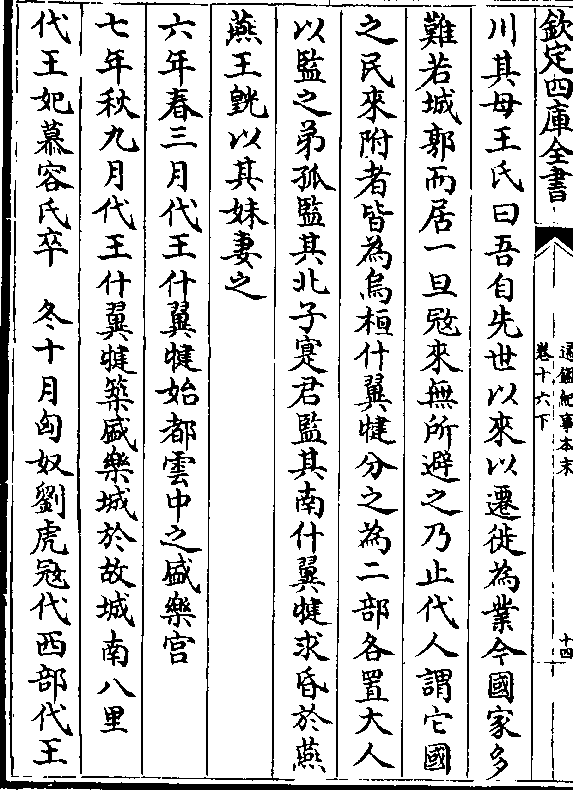 欽定四庫全書
通鑑紀事本末
卷十六下
十四
川其母王氏曰吾自先世以來以遷徙為業今國家多
難若城郭而居一旦宼來無所避之乃止代人謂它國
之民來附者皆為烏桓什翼犍分之為二部各置大人
以監之弟孤監其北子寔君監其南什翼犍求昏於燕
燕王皝以其妹妻之
六年春三月代王什翼犍始都雲中之盛樂宫
七年秋九月代王什翼犍築盛樂城於故城南八里
代王妃慕容氏卒　冬十月匈奴劉虎宼代西部代王